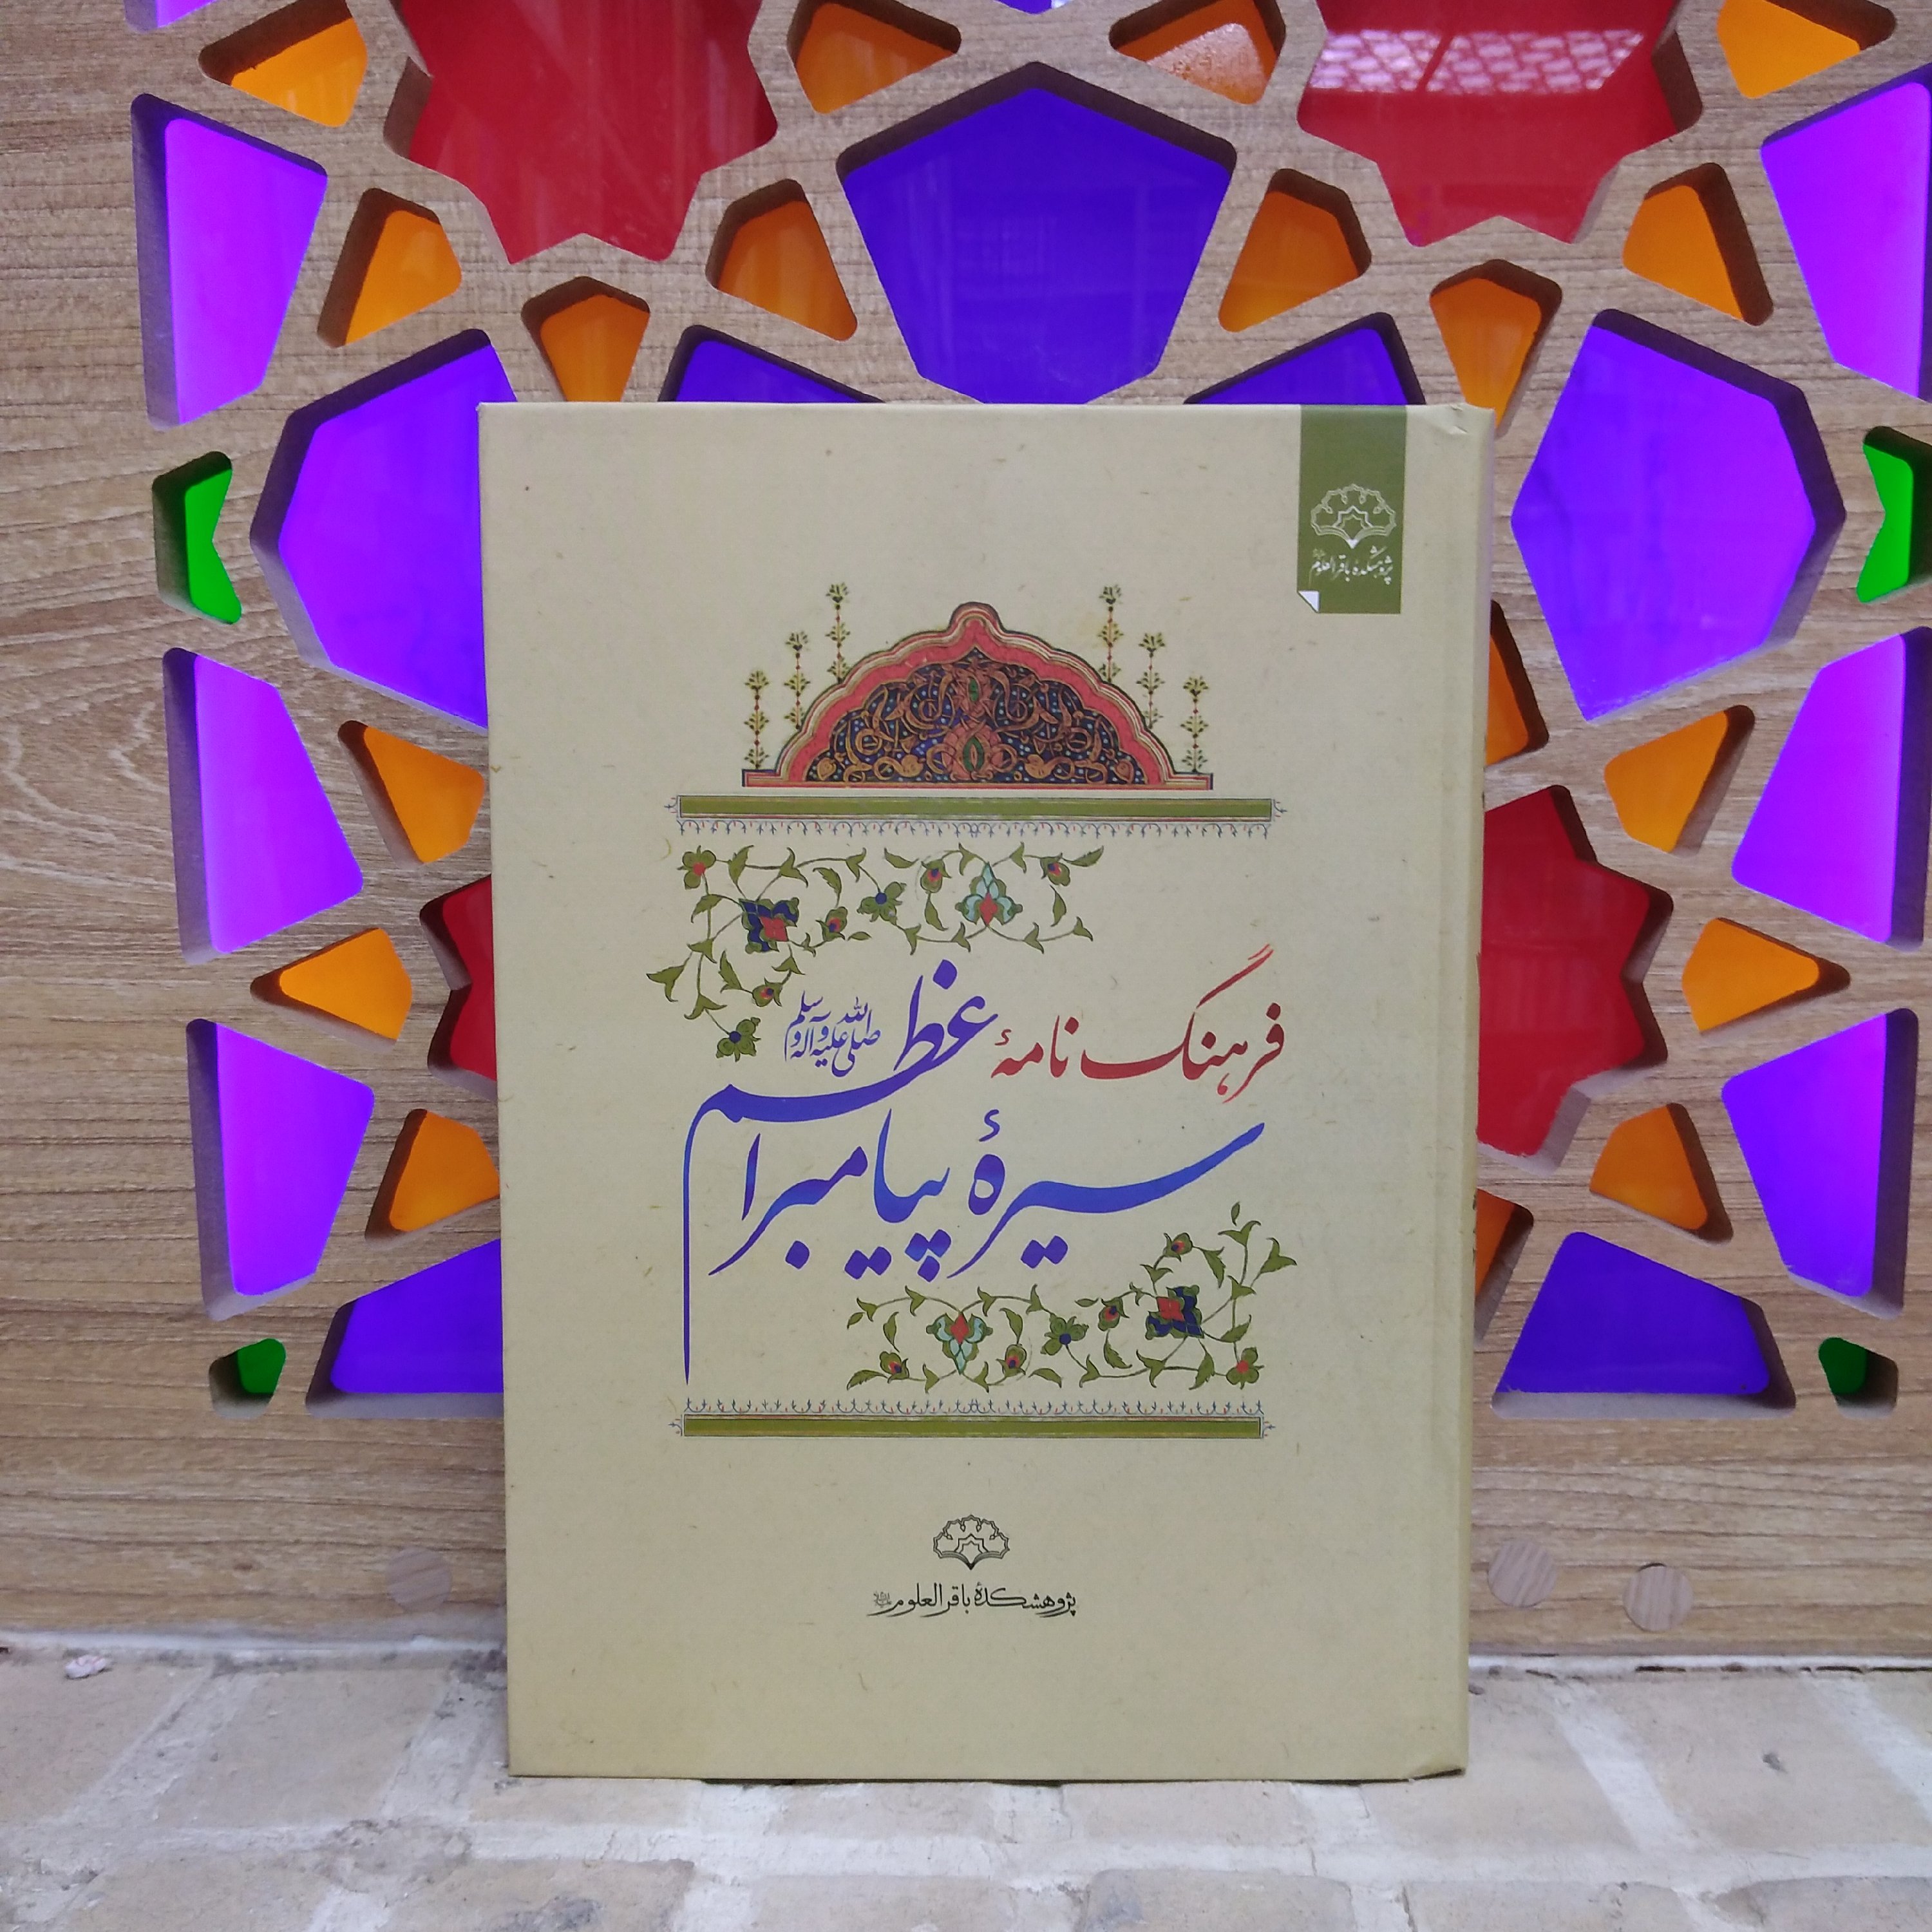 پژوهشکدهٔ باقرالعلوم
فرهنگ نامهٔ
سیرهٔ پیامبر اعظم صلی الله علیه و آله و سلم
پژوهشکدهٔ باقرالعلوم